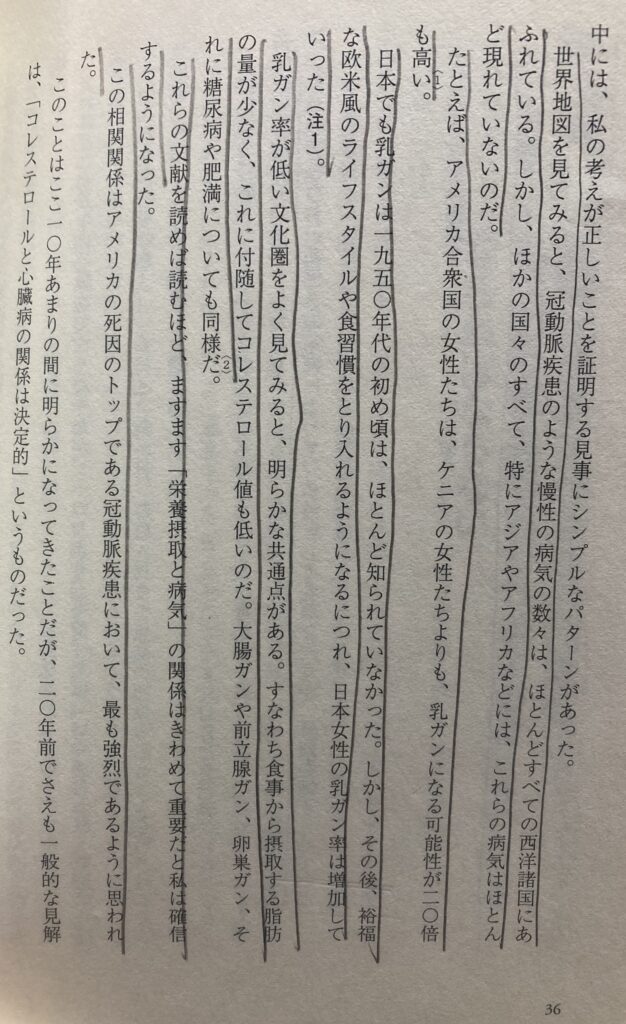 中には、私の考えが正しいことを証明する見事にシンプルなパターンがあった。
世界地図を見てみると、冠動脈疾患のような慢性の病気の数々は、ほとんどすべての西洋諸国にあ
ふれている。しかし、ほかの国々のすべて、特にアジアやアフリカなどには、これらの病気はほとん
ど現れていないのだ。
たとえば、アメリカ合衆国の女性たちは、ケニアの女性たちよりも、乳ガンになる可能性が二〇倍
も高い。(1)
日本でも乳ガンは一九五〇年代の初め頃は、ほとんど知られていなかった。しかし、その後、裕福
な欧米風のライフスタイルや食習慣をとり入れるようになるにつれ、日本女性の乳ガン率は増加して
いった(注1)。
乳ガン率が低い文化圏をよく見てみると、明らかな共通点がある。すなわち食事から摂取する脂肪
の量が少なく、これに付随してコレステロール値も低いのだ。大腸ガンや前立腺ガン、卵巣ガン、そ
れに糖尿病や肥満についても同様だ。(2)
これらの文献を読めば読むほど、ますます「栄養摂取と病気」の関係はきわめて重要だと私は確信
するようになった。
この相関関係はアメリカの死因のトップである冠動脈疾患において、最も強烈であるように思われ
た。
このことはここ一〇年あまりの間に明らかになってきたことだが、二〇年前でさえも一般的な見解
は、「コレステロールと心臓病の関係は決定的」というものだった。
36